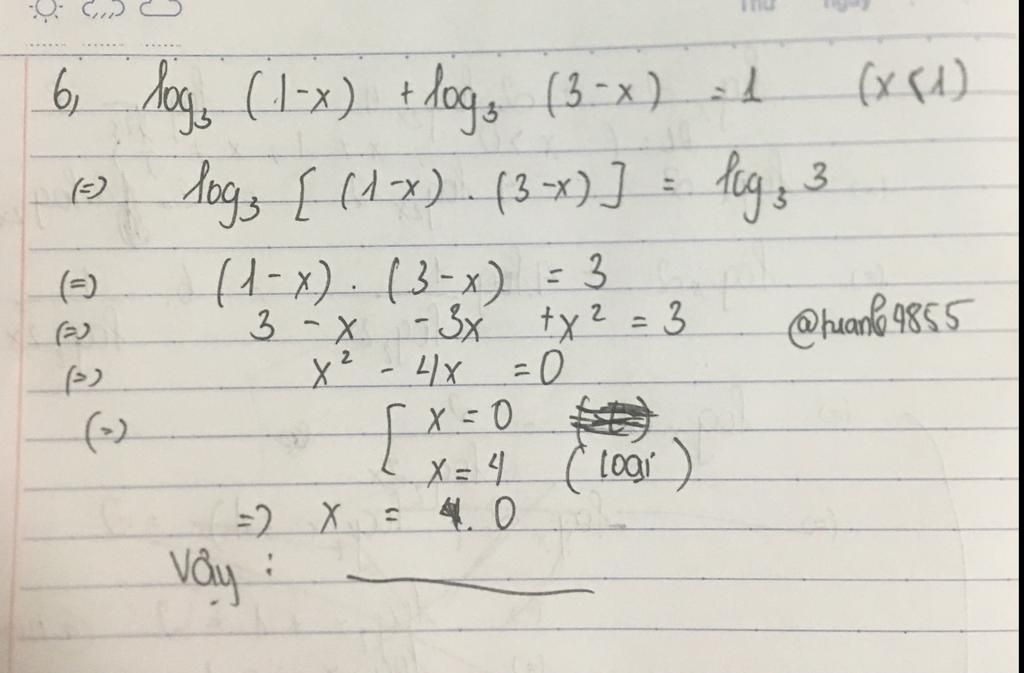 Thứ Ngày
6, log₃ (1-x) + log₃ (3-x) = 1 (x<1)
(=) log₃ [ (1-x) . (3-x) ] = log₃ 3
(=) (1-x) . (3-x) = 3
(=) 3 - x - 3x + x² = 3 @tuanb9855
(=) x² - 4x = 0
(=) [ x = 0
x = 4 (loại)
=> x = 0
Vậy :